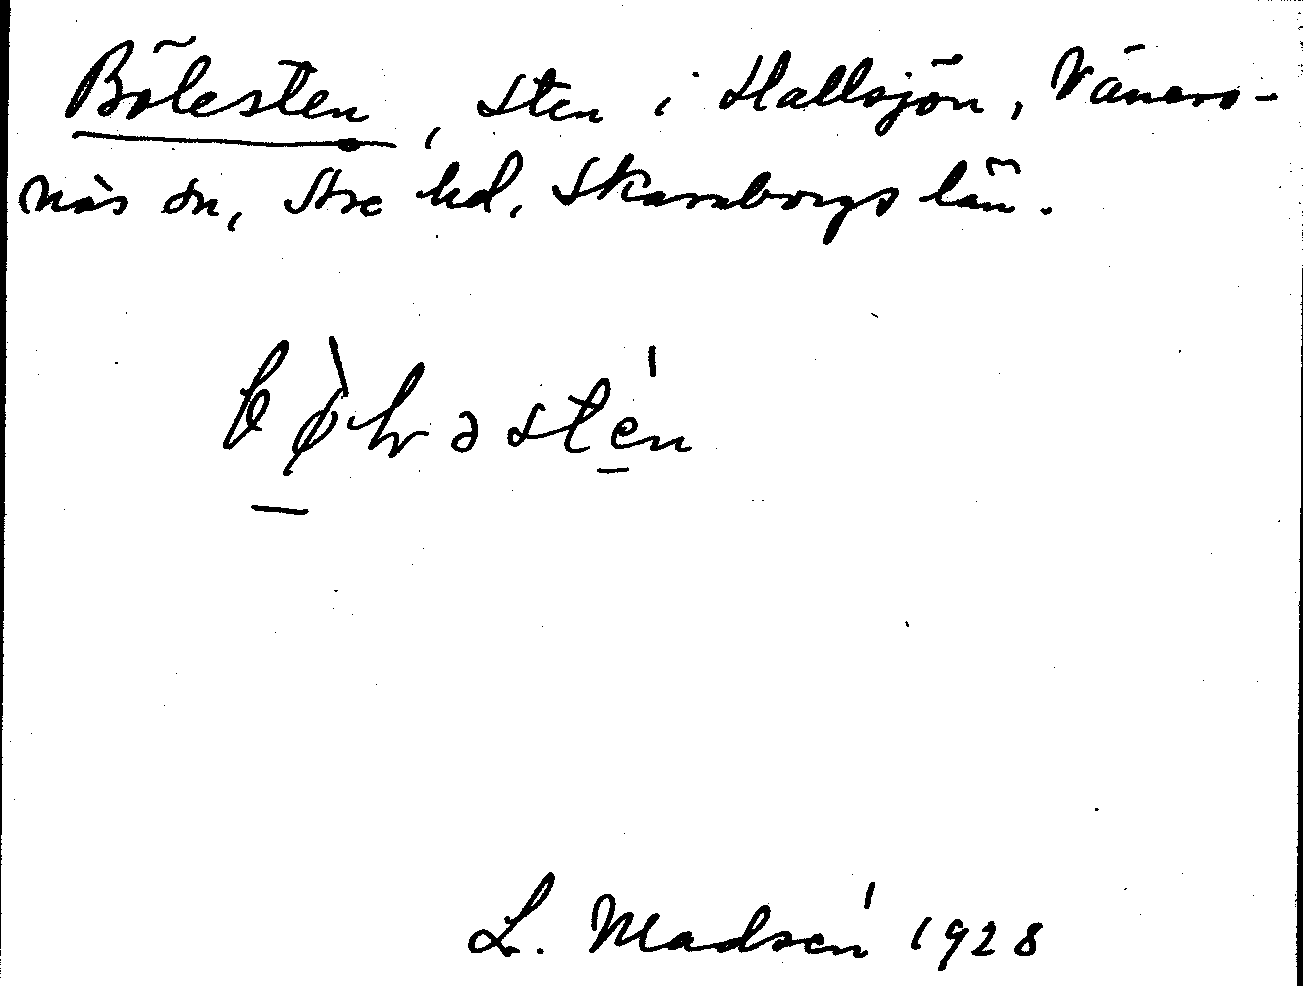 Bölesten, sten i Hallsjön, Väners-
näs sn, Åse hd, Skaraborgs län.
L. Madsén 1928